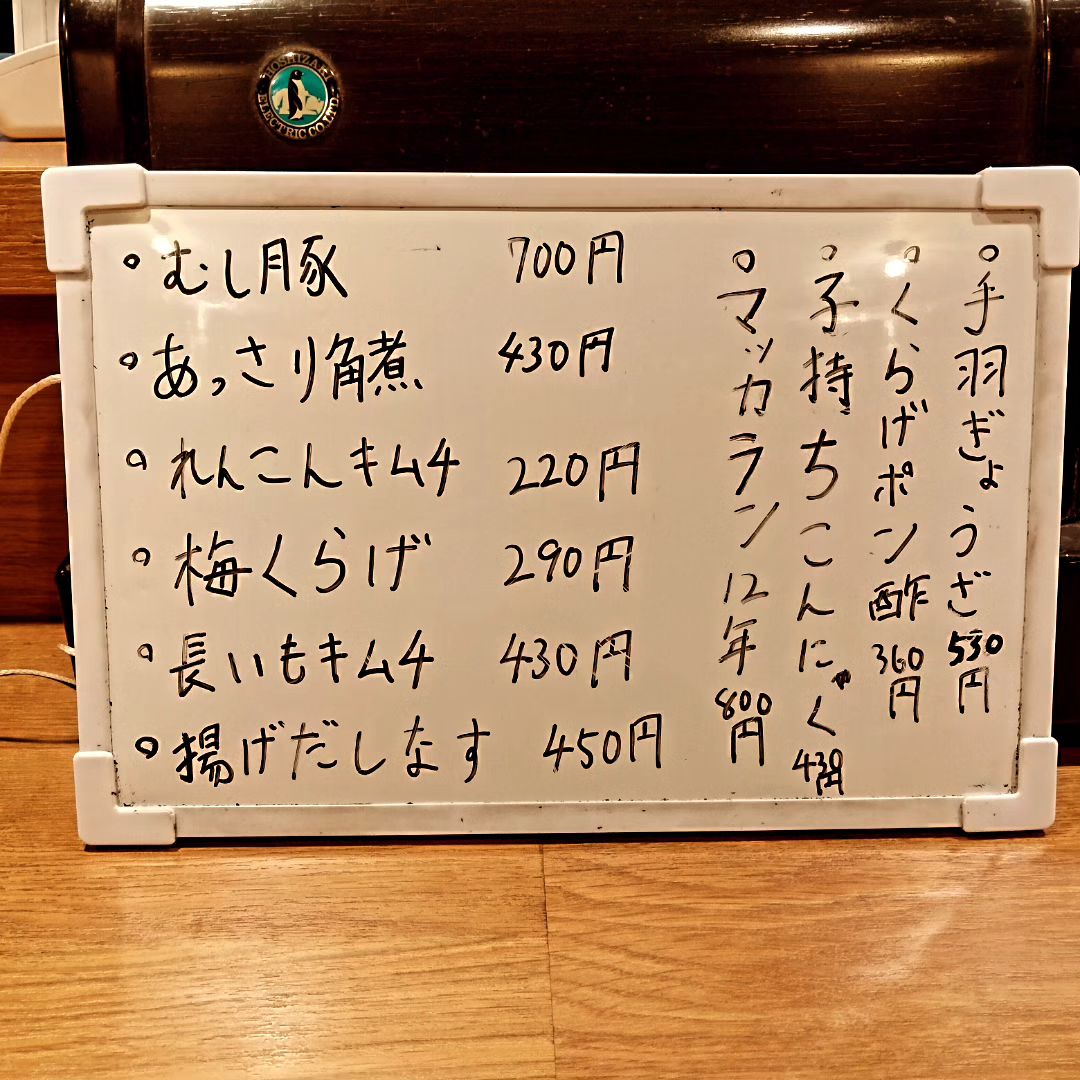 HOSHIZAKI ELECTRIC CO.LTD.
むし豚 700円
あっさり角煮 430円
れんこんキムチ 220円
梅くらげ 290円
長いもキムチ 430円
揚げだしなす 450円
手羽ぎょうざ 530円
くらげポン酢 360円
子持ちこんにゃく 430円
マッカラン12年 800円